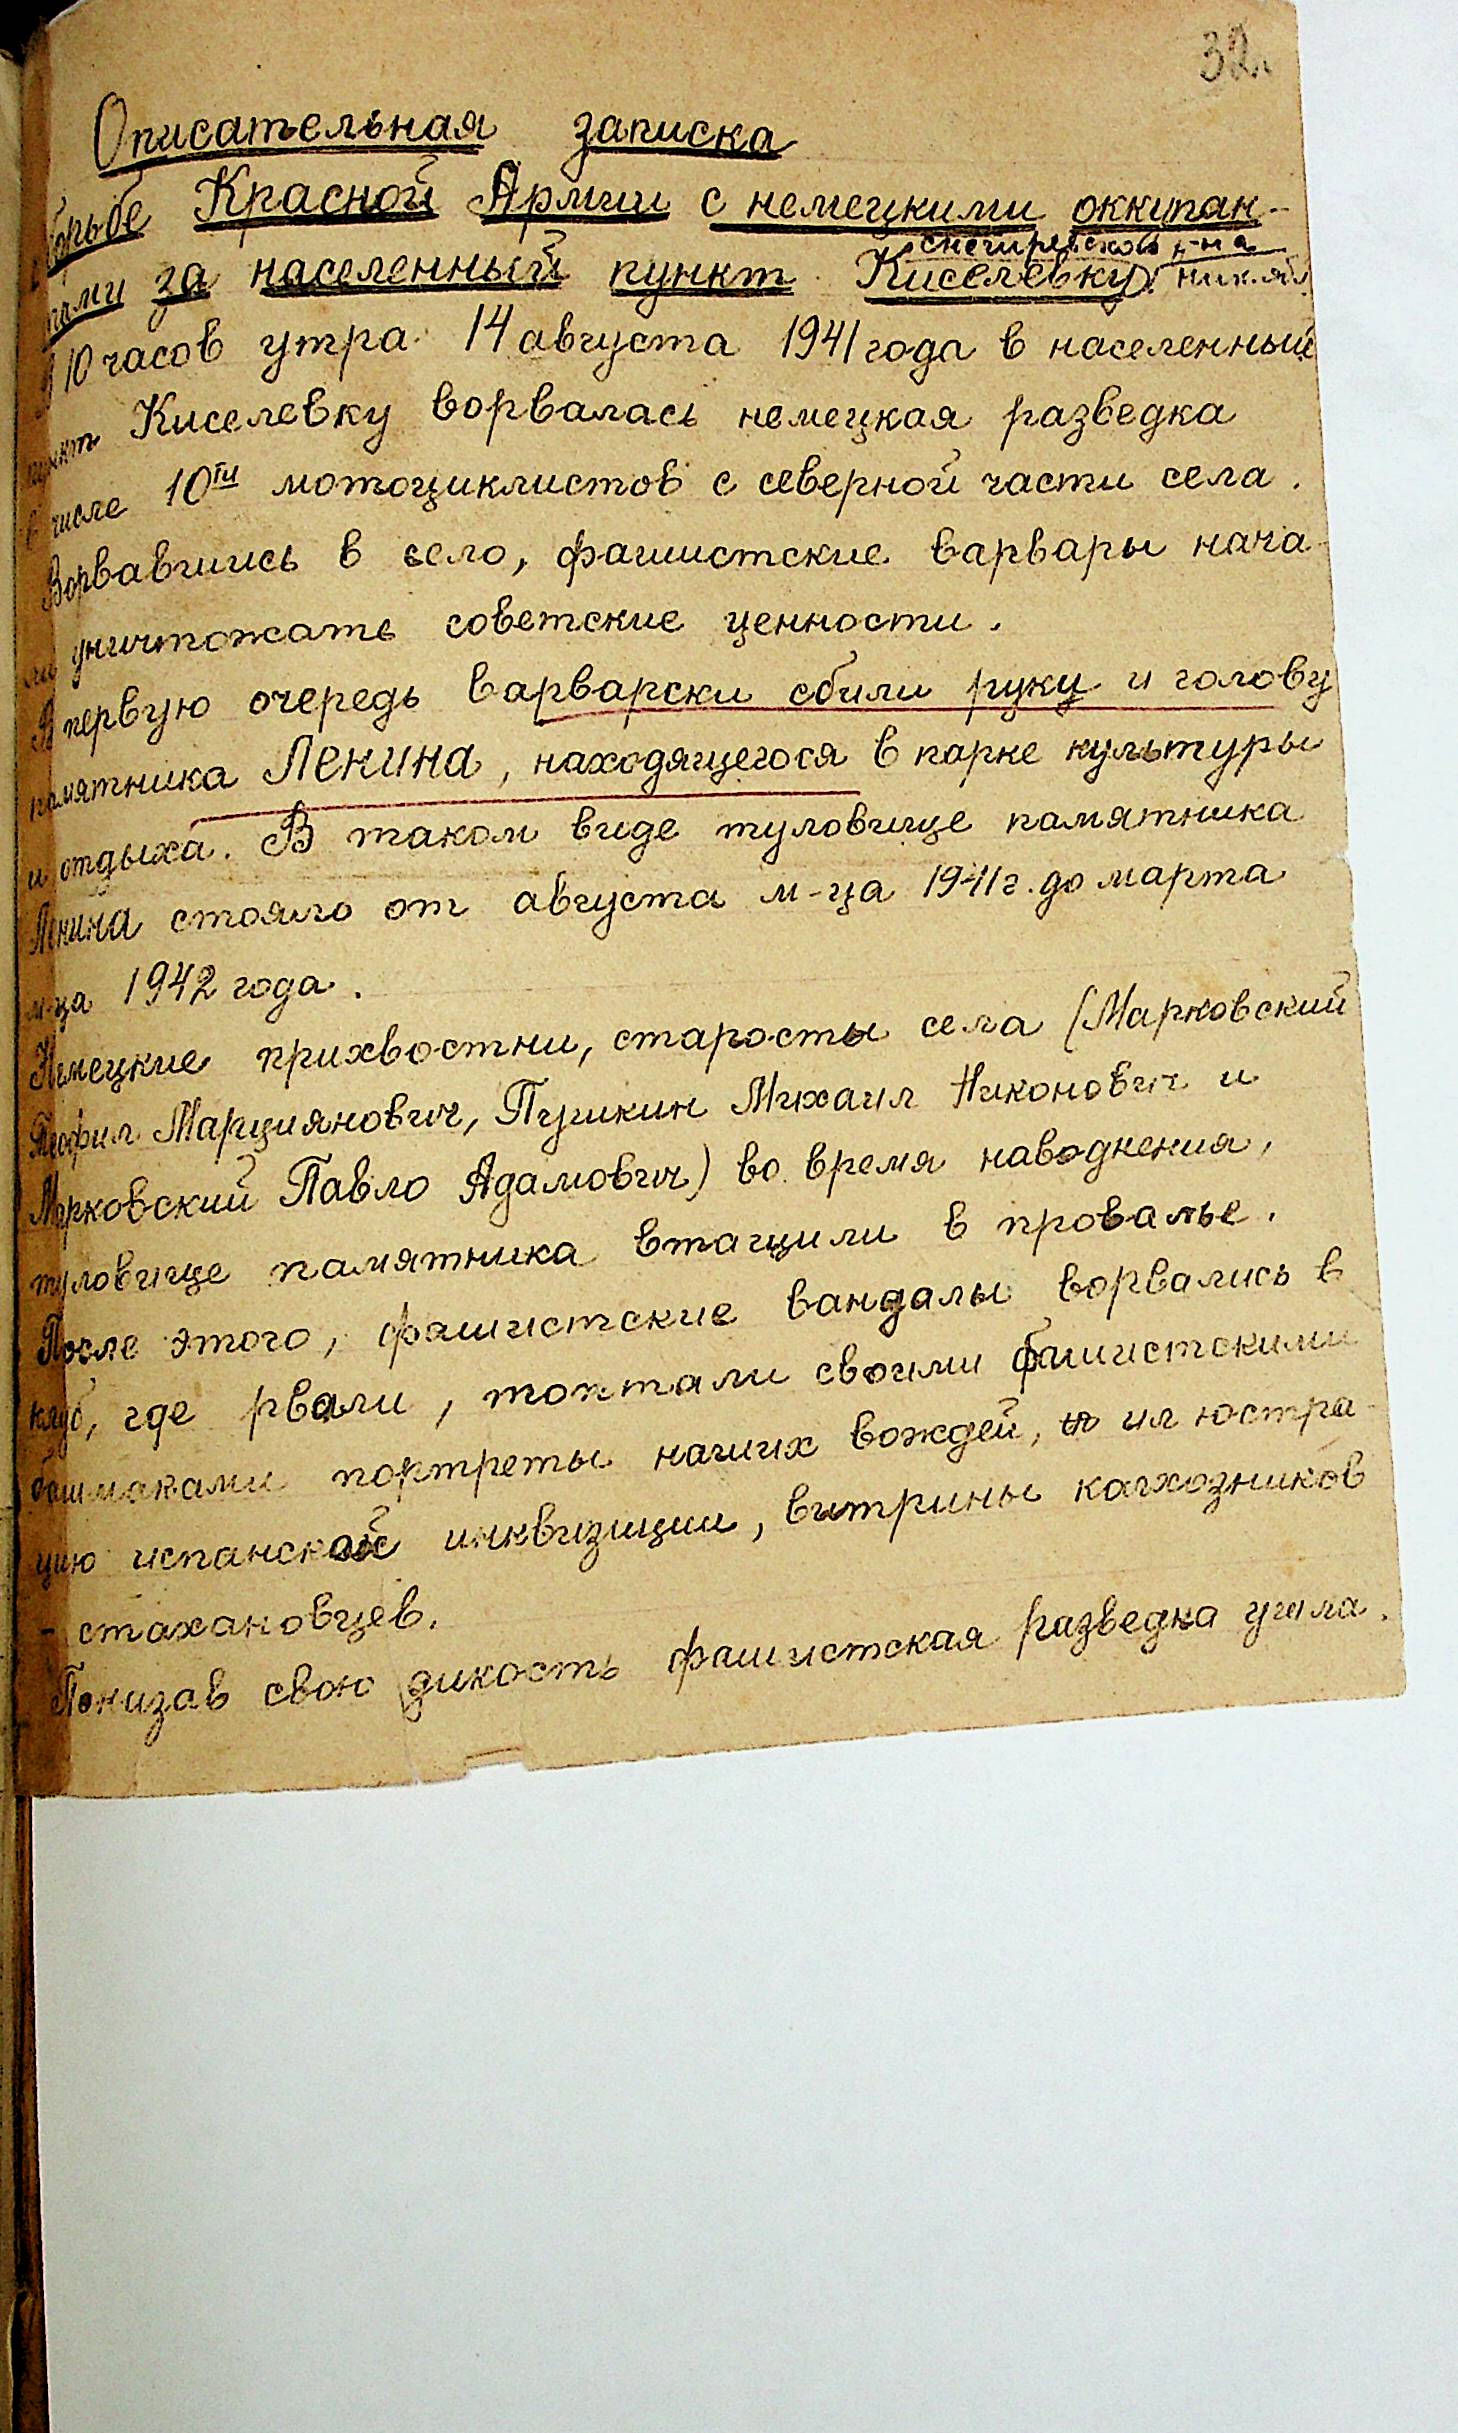 32.
Описательная записка
борьбе Красной Армии с немецкими оккупан-
Снегиревского р-на
тами за населенный пункт Киселевку. Ник. обл.
В 10 часов утра 14 августа 1941 года в населенный
пункт Киселевку ворвалась немецкая разведка
в числе 10ти мотоциклистов с северной части села.
Ворвавшись в село, фашистские варвары нача-
ли уничтожать советские ценности.
В первую очередь варварски сбили руку и голову
памятника Ленина, находящегося в парке культуры
и отдыха. В таком виде туловище памятника
Ленина стояло от августа м-ца 1941 г. до марта
м-ца 1942 года.
Немецкие прихвостни, старосты села (Марковский
Теофил Марциянович, Пушкин Михаил Никонович и
Марковский Павло Адамович) во время наводнения,
туловище памятника втащили в провалье.
После этого, фашистские вандалы ворвались в
клуб, где рвали, топтали своими фашистскими
башмаками портреты наших вождей, ил юстра-
цию испанской инквизиции, витрины калхозников
- стахановцев.
Понизав свою дикость фашистская разведка ушла.